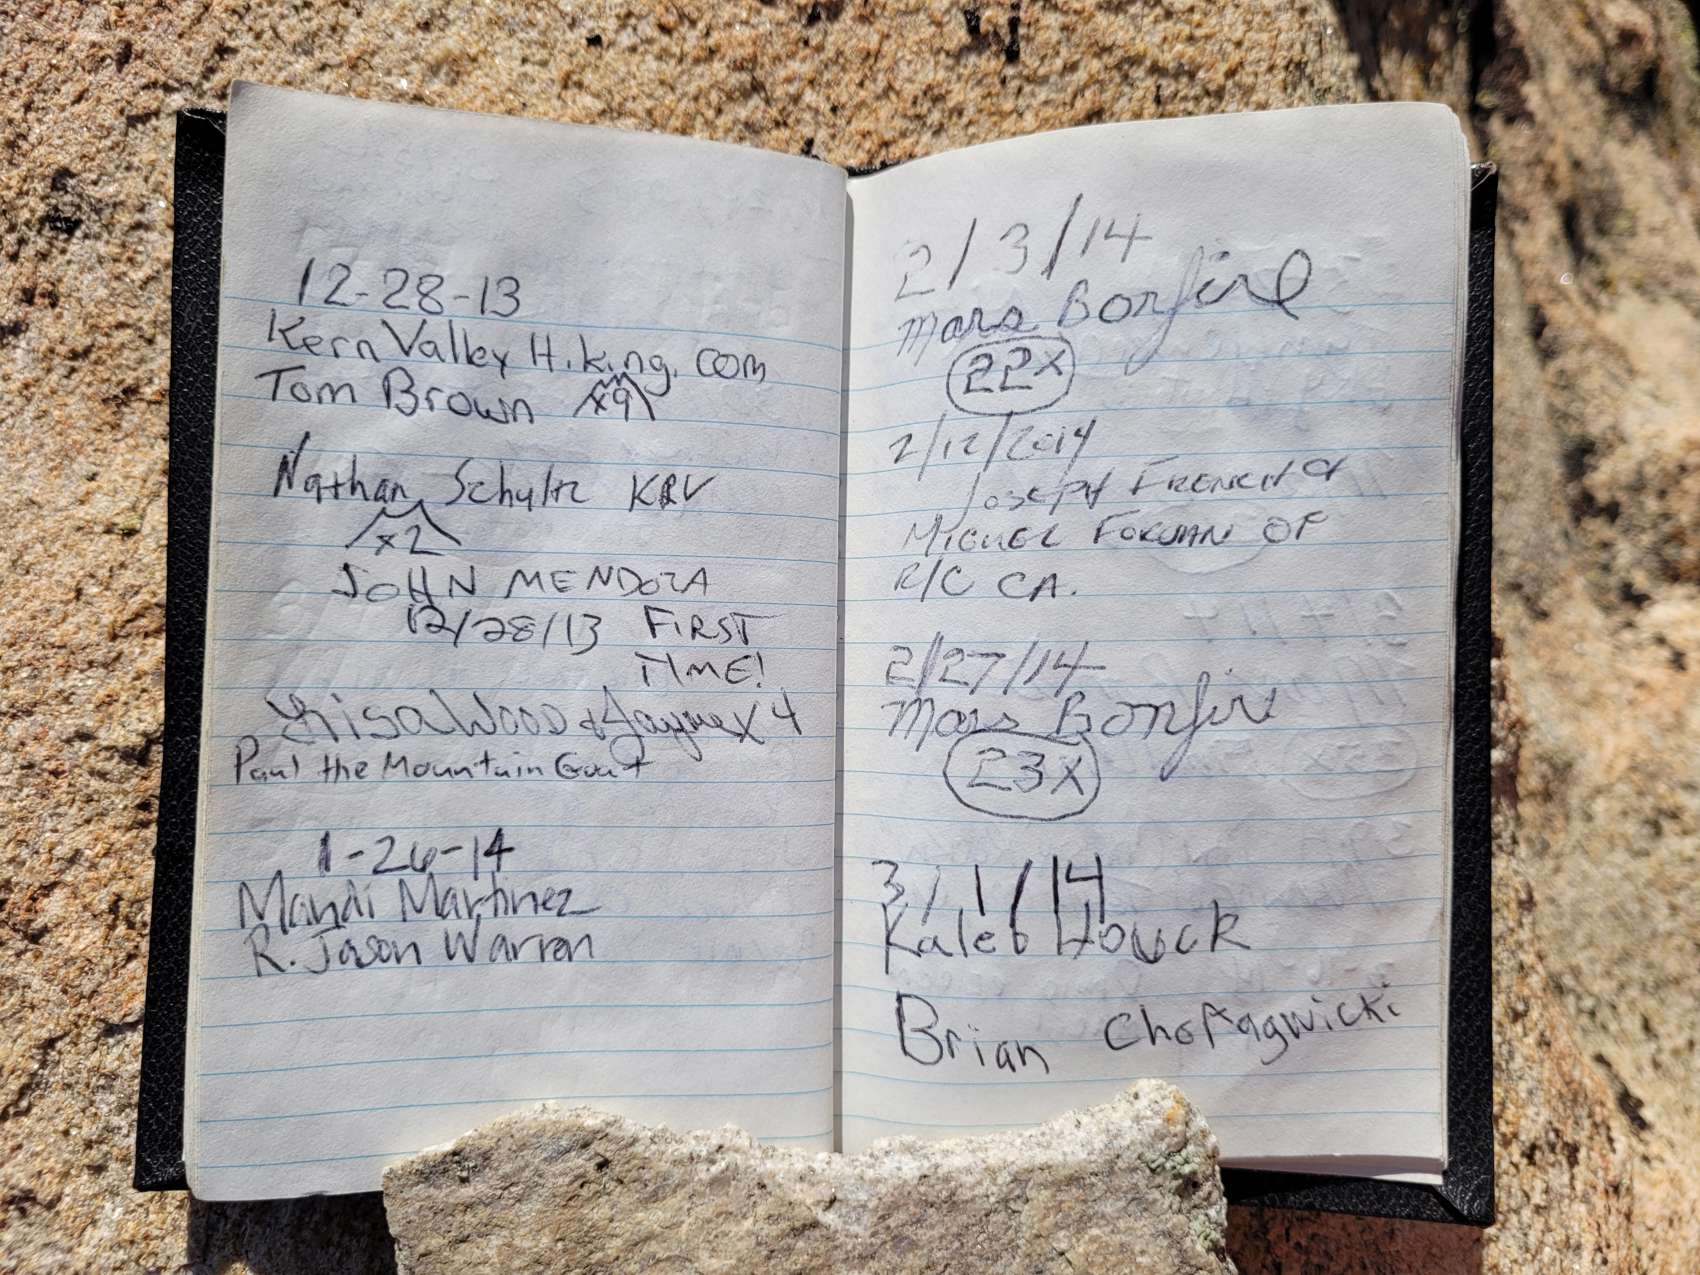 12-28-13
Kern Valley Hiking.com
Tom Brown x9
Nathan Schultz KRV
x2
JOHN MENDOZA
12/28/13 FIRST
TIME!
Lisa Wood & Jayne x 4
Paul the Mountain Goat
1-26-14
Mandi Martinez
R. Jason Warren
2/3/14
Mars Bonfire
22x
2/12/2014
JOSEPH FRENCH &
MIGUEL OF
R/C CA.
2/27/14
Mars Bonfire
23x
3/1/14
Kaleb Houck
Brian